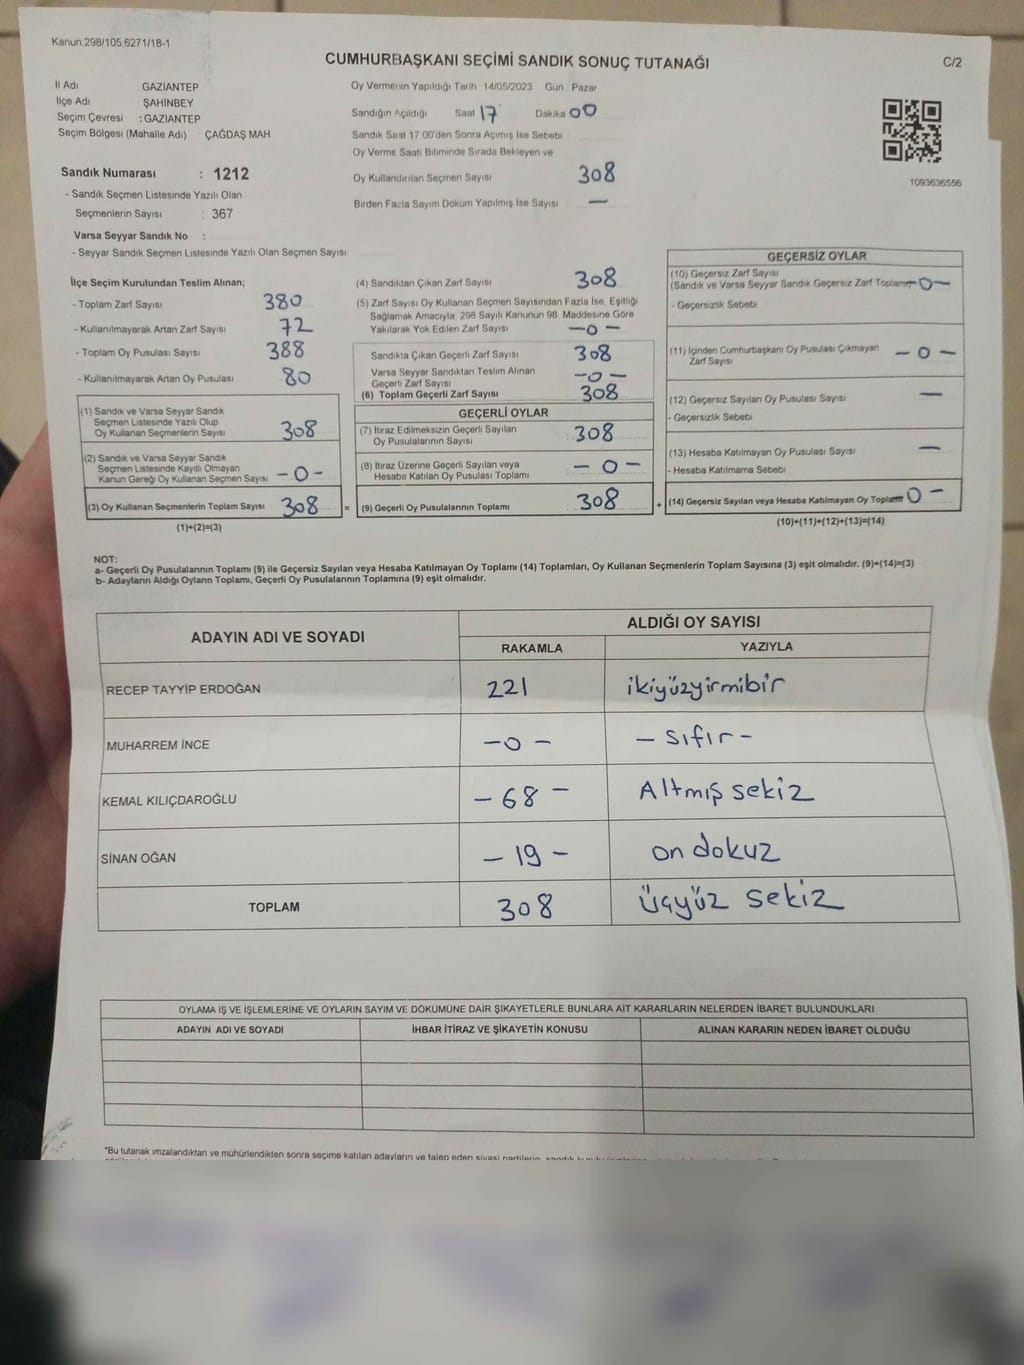 Kanun 298/105,6271/18-1
CUMHURBAŞKANI SEÇİMİ SANDIK SONUÇ TUTANAĞI
C/2
İl Adı GAZİANTEP
İlçe Adı ŞAHİNBEY
Seçim Çevresi : GAZİANTEP
Seçim Bölgesi (Mahalle Adı) ÇAĞDAŞ MAH
Oy Vermenin Yapıldığı Tarih 14/05/2023 Gün Pazar
Sandığın Açıldığı Saat 17 Dakika 00
Sandık Saat 17 00'den Sonra Açımış İse Sebebi
Oy Verme Saati Bitiminde Sırada Bekleyen ve
Oy Kullandırılan Seçmen Sayısı 308
Birden Fazla Sayım Döküm Yapılmış İse Sayısı —
1093636556
Sandık Numarası : 1212
- Sandık Seçmen Listesinde Yazılı Olan
Seçmenlerin Sayısı : 367
Varsa Seyyar Sandık No :
- Seyyar Sandık Seçmen Listesinde Yazılı Olan Seçmen Sayısı
İlçe Seçim Kurulundan Teslim Alınan;
- Toplam Zarf Sayısı 380
- Kullanılmayarak Artan Zarf Sayısı 72
- Toplam Oy Pusulası Sayısı 388
- Kullanılmayarak Artan Oy Pusulası 80
(1) Sandık ve Varsa Seyyar Sandık
Seçmen Listesinde Yazılı Olup
Oy Kullanan Seçmenlerin Sayısı 308
(2) Sandık ve Varsa Seyyar Sandık
Seçmen Listesinde Kayıtlı Olmayan
Kanun Gereği Oy Kullanan Seçmen Sayısı -0-
(3) Oy Kullanan Seçmenlerin Toplam Sayısı 308 =
(1)+(2)=(3)
(4) Sandıktan Çıkan Zarf Sayısı 308
(5) Zarf Sayısı Oy Kullanan Seçmen Sayısından Fazla İse, Eşitliği
Sağlamak Amacıyla, 298 Sayılı Kanunun 98. Maddesine Göre
Yakılarak Yok Edilen Zarf Sayısı -0-
Sandıkta Çıkan Geçerli Zarf Sayısı 308
Varsa Seyyar Sandıktan Teslim Alınan
Geçerli Zarf Sayısı -0-
(6) Toplam Geçerli Zarf Sayısı 308
GEÇERLİ OYLAR
(7) İtiraz Edilmeksizin Geçerli Sayılan
Oy Pusulalarının Sayısı 308
(8) İtiraz Üzerine Geçerli Sayılan veya
Hesaba Katılan Oy Pusulası Toplamı -0-
(9) Geçerli Oy Pusulalarının Toplamı 308 +
GEÇERSİZ OYLAR
(10) Geçersiz Zarf Sayısı
(Sandık ve Varsa Seyyar Sandık Geçersiz Zarf Toplamı -0-
- Geçersizlik Sebebi
(11) İçinden Cumhurbaşkanı Oy Pusulası Çıkmayan
Zarf Sayısı -0-
(12) Geçersiz Sayılan Oy Pusulası Sayısı —
- Geçersizlik Sebebi
(13) Hesaba Katılmayan Oy Pusulası Sayısı —
- Hesaba Katılmama Sebebi
(14) Geçersiz Sayılan veya Hesaba Katılmayan Oy Toplamı -0-
(10)+(11)+(12)+(13)=(14)
NOT:
a- Geçerli Oy Pusulalarının Toplamı (9) ile Geçersiz Sayılan veya Hesaba Katılmayan Oy Toplamı (14) Toplamları, Oy Kullanan Seçmenlerin Toplam Sayısına (3) eşit olmalıdır. (9)+(14)=(3)
b- Adayların Aldığı Oyların Toplamı, Geçerli Oy Pusulalarının Toplamına (9) eşit olmalıdır.
ADAYIN ADI VE SOYADI
ALDIĞI OY SAYISI
RAKAMLA YAZIYLA
RECEP TAYYİP ERDOĞAN 221 ikiyüzyirmibir
MUHARREM İNCE -0- -sıfır-
KEMAL KILIÇDAROĞLU -68- Altmış sekiz
SİNAN OĞAN -19- on dokuz
TOPLAM 308 üçyüz sekiz
OYLAMA İŞ VE İŞLEMLERİNE VE OYLARIN SAYIM VE DÖKÜMÜNE DAİR ŞİKAYETLERLE BUNLARA AİT KARARLARIN NELERDEN İBARET BULUNDUKLARI
ADAYIN ADI VE SOYADI İHBAR İTİRAZ VE ŞİKAYETİN KONUSU ALINAN KARARIN NEDEN İBARET OLDUĞU
*Bu tutanak imzalandıktan ve mühürlendikten sonra seçime katılan adayların ve talep eden siyasi partilerin, sandık